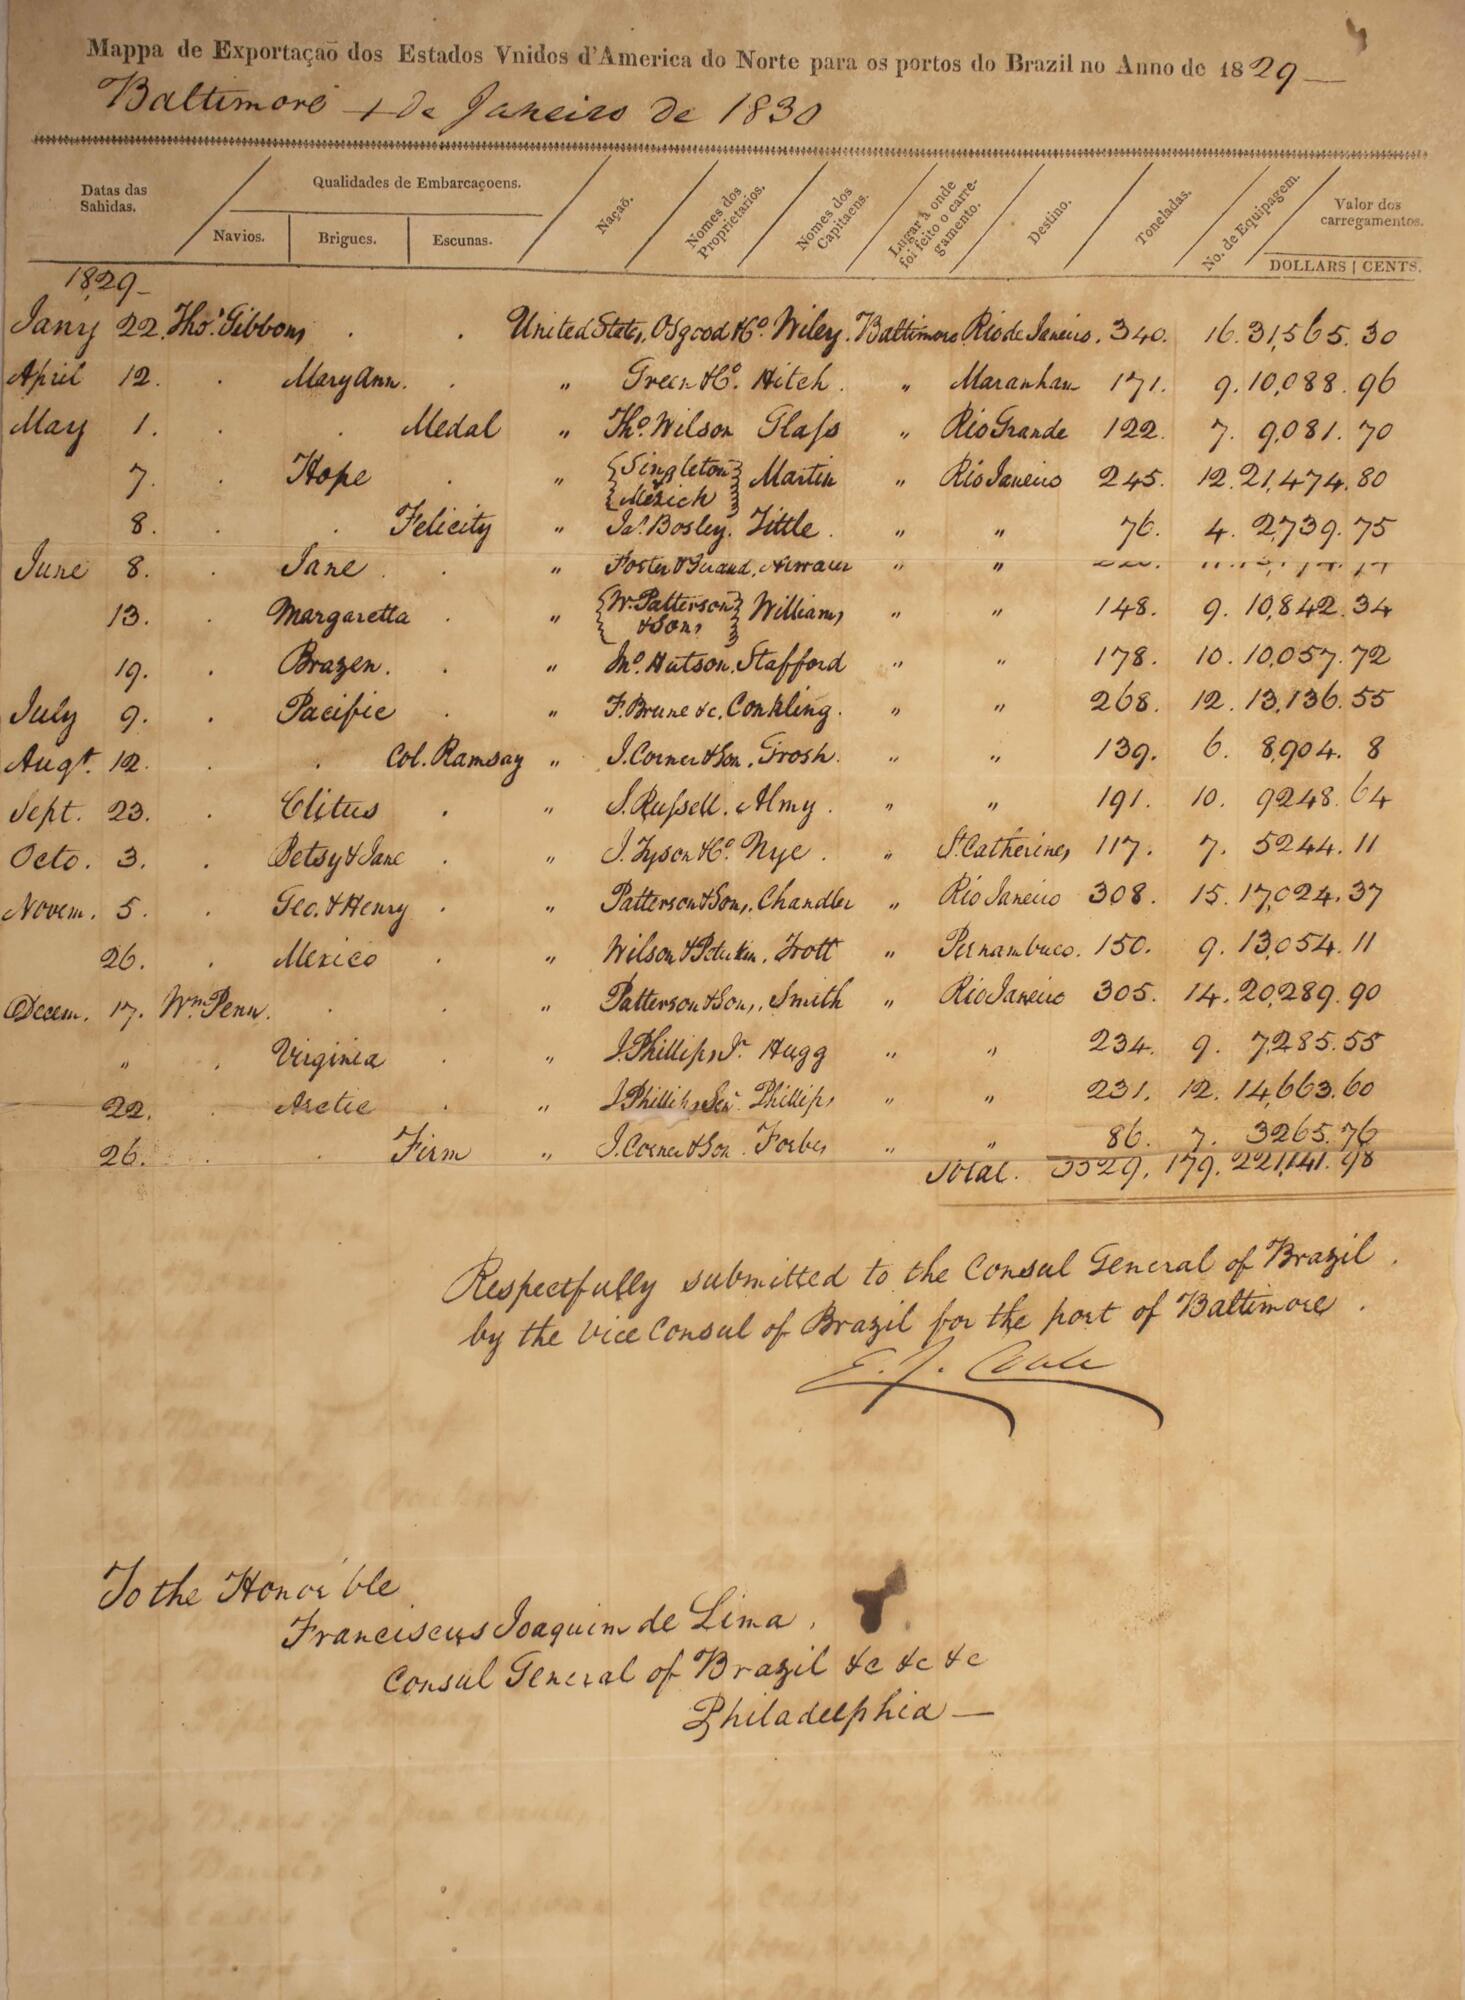 Mappa de Exportaçaõ dos Estados Vnidos d'America do Norte para os portos do Brazil no Anno de 1829 —
Baltimore 1 de Janeiro de 1830
Datas das Sahidas. Qualidades de Embarcaçoens. Navios. Brigues. Escunas. Naçaõ. Nomes dos Proprietarios. Nomes dos Capitaens. Lugar à onde foi feito o carregamento. Destino. Toneladas. No. de Equipagem. Valor dos carregamentos. DOLLARS | CENTS.
1829 —
Jany 22. Thos. Gibbons . . United States, Osgood & Co. Wiley. Baltimore Rio de Janeiro. 340. 16. 31,565. 30
April 12. . Mary Ann. . " Green & Co. Hitch. " Maranham 171. 9. 10,088. 96
May 1. . . Medal " Tho. Wilson Glass " Rio Grande 122. 7. 9,081. 70
7. . Hope . " {Singleton & Mezich} Martin " Rio Janeiro 245. 12. 21,474. 80
8. . . Felicity " Jas. Bosley. Tittle. " " 76. 4. 2,739. 75
June 8. . Jane . . " Foster & " "
13. . Margaretta . " {W. Patterson & Sons} Williams " " 148. 9. 10,842. 34
19. . Brazen. . " Jno. Hutson. Stafford " " 178. 10. 10,057. 72
July 9. . Pacific . " F. Brune &c. Conkling. " " 268. 12. 13,136. 55
Augt. 12. . . Col. Ramsay " J. Corner & Son. Grosh. " " 139. 6. 8,904. 8
Sept. 23. . Clitus . " S. Russell. Almy. " " 191. 10. 9248. 64
Octo. 3. . Betsy & Jane . " J. Tyson & Co. Nye. " St. Catherines 117. 7. 5244. 11
Novem. 5. . Geo. & Henry . " Patterson & Sons. Chandler " Rio Janeiro 308. 15. 17,024. 37
26. . Mexico . " Wilson & Trott " Pernambuco. 150. 9. 13,054. 11
Decem. 17. Wm. Penn. . . " Patterson & Sons, Smith " Rio Janeiro 305. 14. 20,289. 90
" . Virginia . " J. Phillips Jr. Hugg " " 234. 9. 7,285. 55
22. . Arctic . " J. Phillips Senr. Phillips " " 231. 12. 14,663. 60
26. . . Firm " J. Corner & Son. Forbes " " 86. 7. 3265. 76
Total. 3529. 179. 221,141. 98
Respectfully submitted to the Consul General of Brazil.
by the Vice Consul of Brazil for the port of Baltimore.
E. J. Coale
To the Honorible
Franciscus Joaquim de Lima.
Consul General of Brazil &c &c &c
Philadelphia —